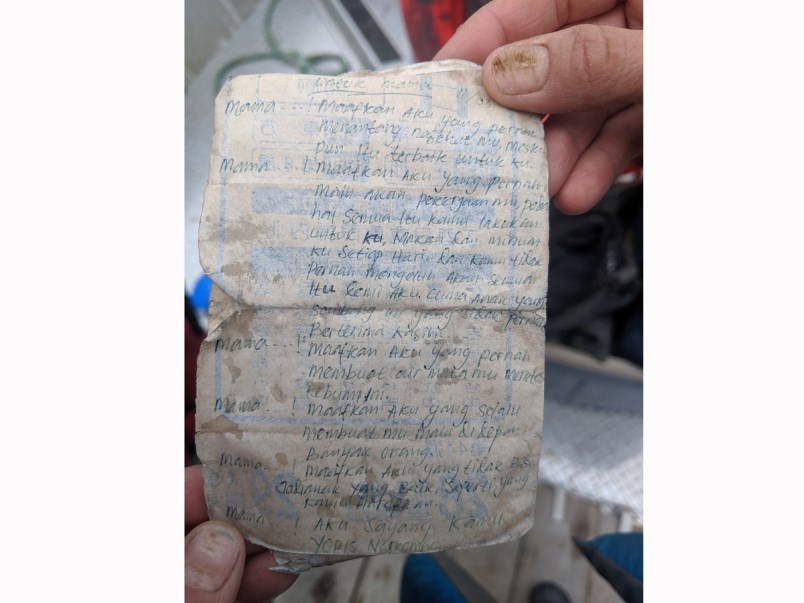 Untuk mama
Mama...! Maafkan Aku yang pernah
menantang nasehat mu, meski
pun Itu terbaik untuk ku.
Mama...! Maafkan Aku yang pernah
malu akan pekerjaan mu, pada
hal Semua Itu kamu lakukan
untuk ku, Makan dan minum
ku Setiap Hari, dan kamu tidak
Pernah mengeluh Akan Semua
Itu Demi Aku. Cuma Anak yang
sombong ini yang tidak pernah
Berterima Kasih.
Mama...! Maafkan Aku yang pernah
membuat air mata mu menetes
Mama...! Maafkan Aku yang selalu
membuat mu malu di depan
Banyak orang.
Mama ! Maafkan Aku yang tidak Bisa
Jadi anak yang Baik, Seperti yang
kamu Harapkan.
Mama ! Aku Sayang Kamu
YOPIS